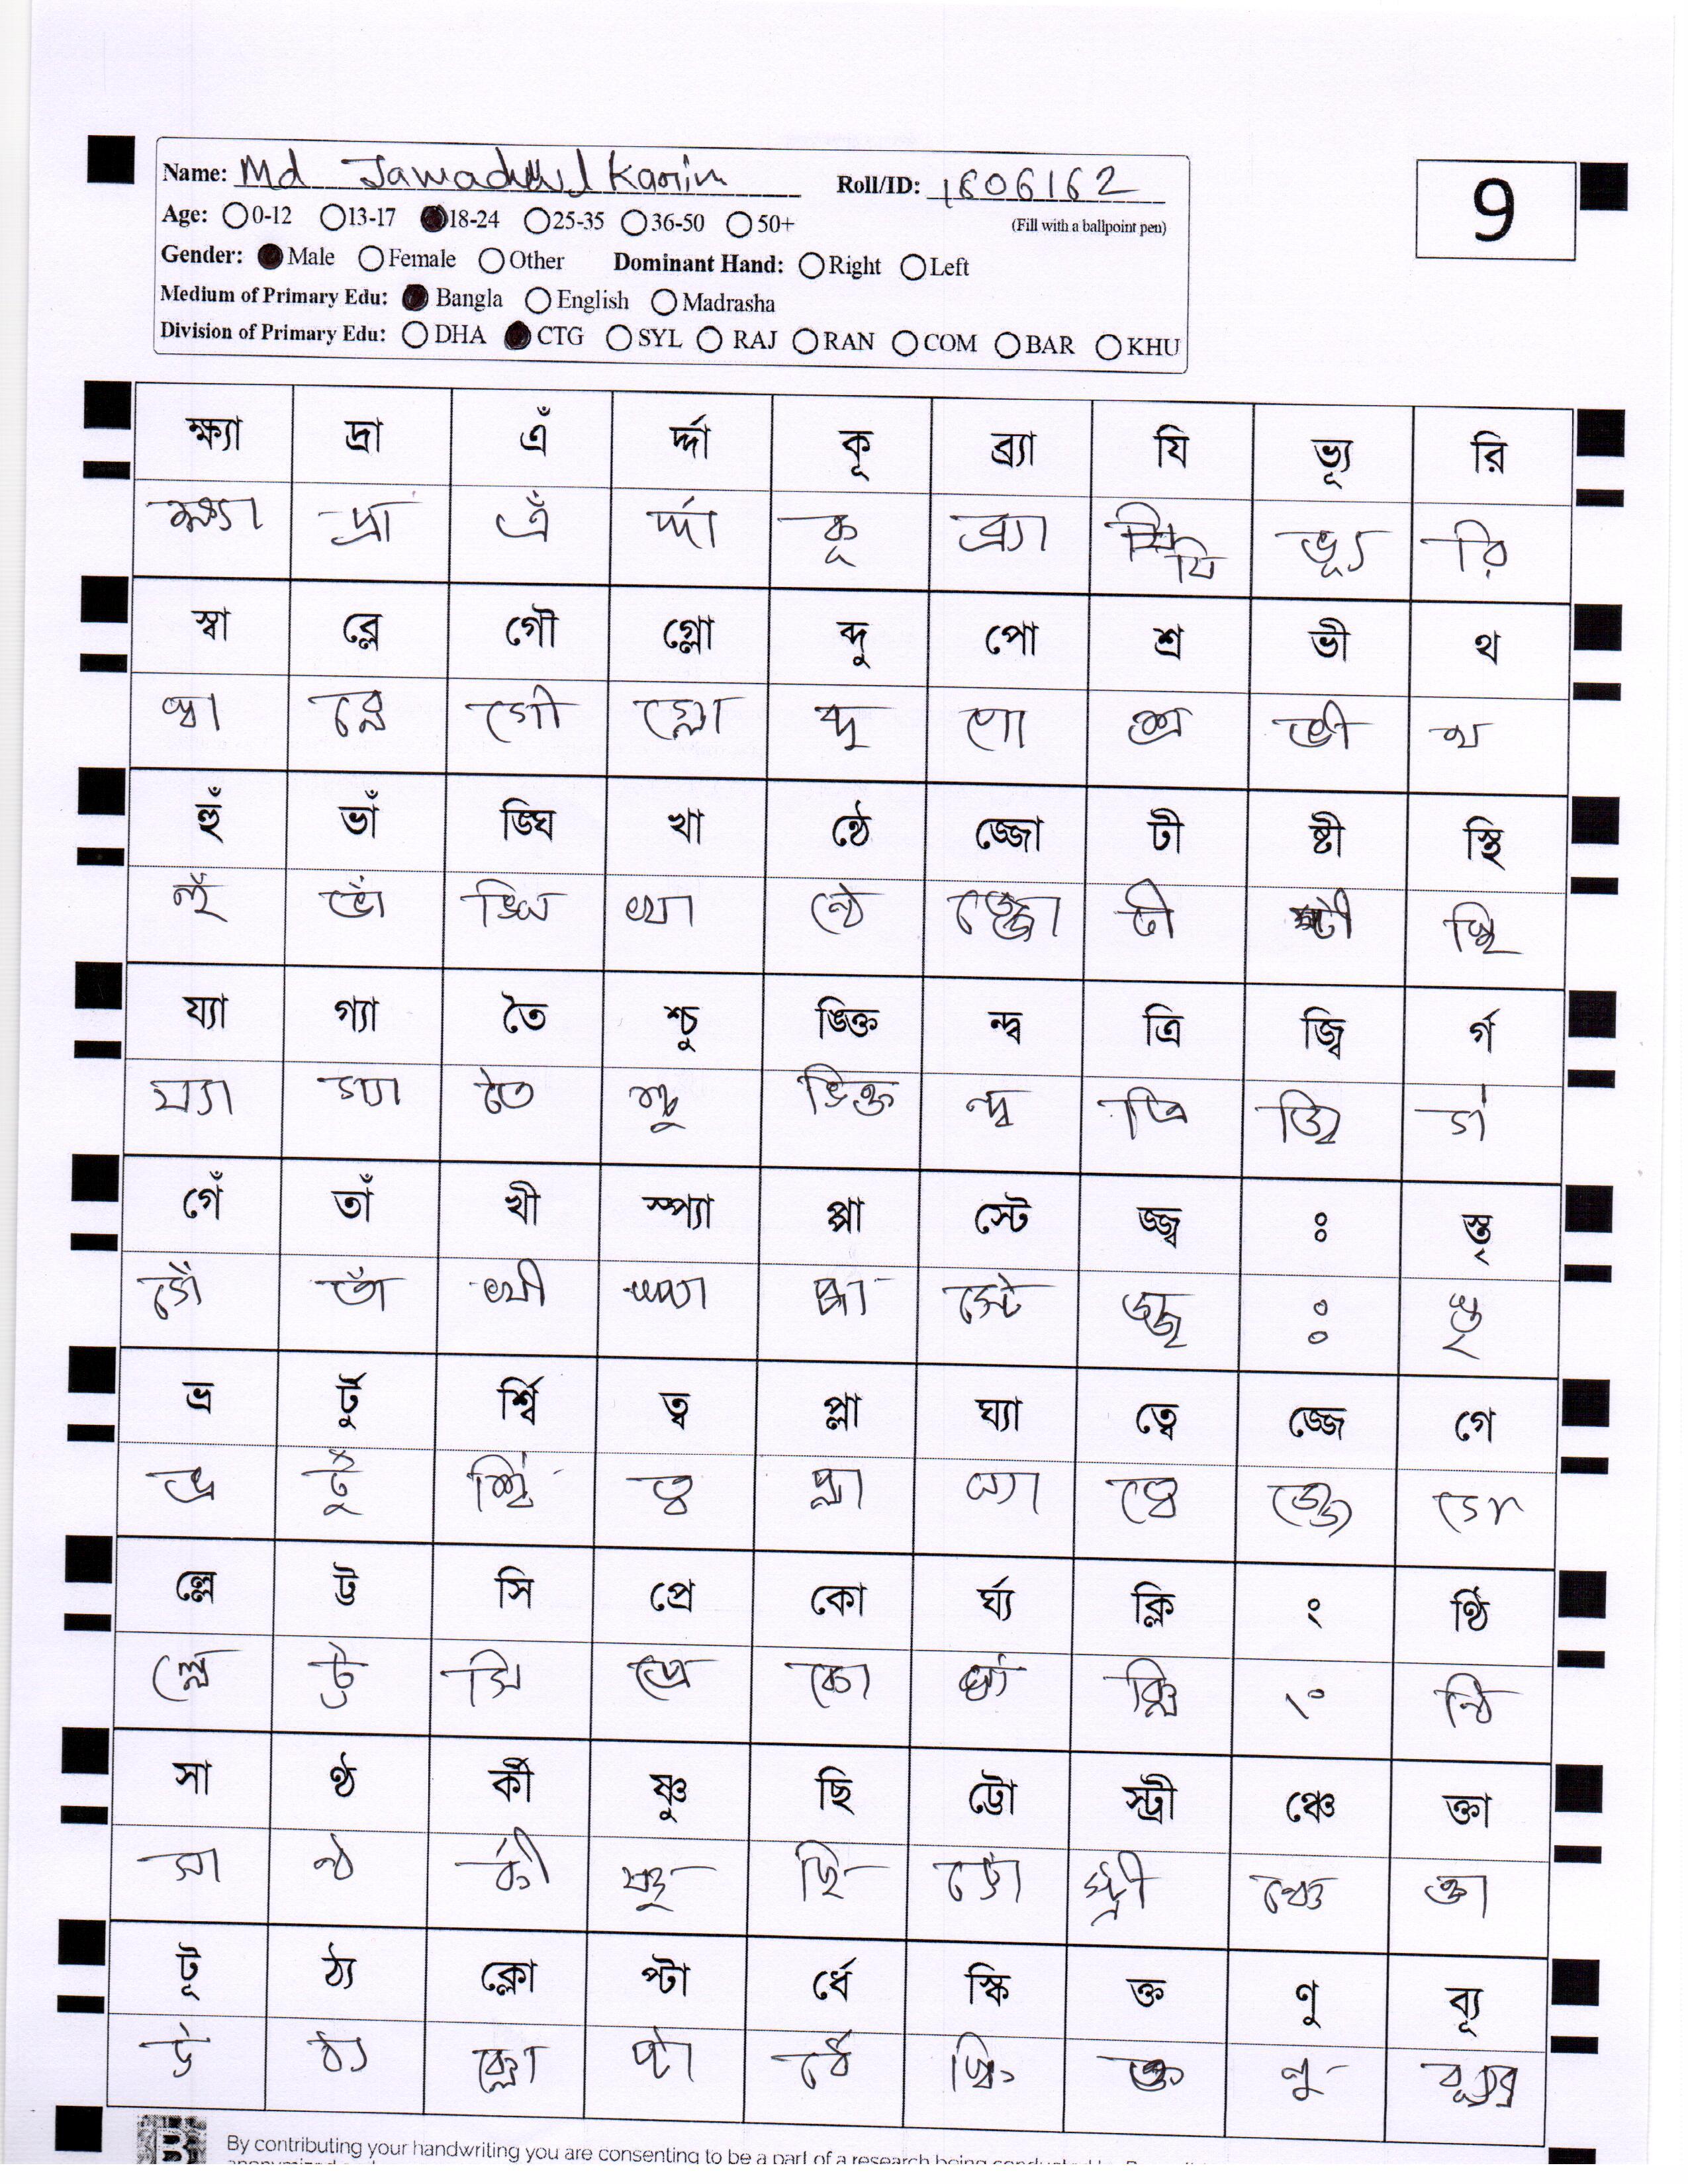 Name: Md Jawadul Karim Roll/ID: 1606162
9
Age: 0-12 13-17 18-24 25-35 36-50 50+ (Fill with a ballpoint pen)
Gender: Male Female Other Dominant Hand: Right Left
Medium of Primary Edu: Bangla English Madrasha
Division of Primary Edu: DHA CTG SYL RAJ RAN COM BAR KHU
ক্ষ্যা দ্রা এঁ র্দ্দা কূ ব্র্যা যি ভ্যূ রি
ক্ষ্যা দ্রা এঁ র্দ্দা কূ ব্র্যা যি ভ্যূ রি
স্বা ব্লে গৌ গ্লো ব্দু পো শ্র ভী থ
স্বা ব্লে গৌ গ্লো ব্দু পো শ্র ভী থ
হুঁ ভাঁ ঙ্ঘি খা ন্ঠে জ্জো টী ষ্টী স্থি
হুঁ ভাঁ ঙ্ঘি খা ন্ঠে জ্জো টী ষ্টী স্থি
য্যা গ্যা তৈ শ্চু ঙ্ক্তি ন্দ্ব ত্রি জ্বি র্গ
য্যা গ্যা তৈ শ্চু ঙ্ক্তি ন্দ্ব ত্রি জ্বি র্গ
গেঁ তাঁ খী স্প্যা প্পা স্টে জ্জ্ব ঃ স্তৃ
গেঁ তাঁ খী স্প্যা প্পা স্টে জ্জ্ব ঃ স্তৃ
ভ্র র্টু র্শ্বি ত্ব প্লা ঘ্যা ত্বে জ্জে গে
ভ্র র্টু র্শ্বি ত্ব প্লা ঘ্যা ত্বে জ্জে গে
ল্লে ট্ট সি প্রে কো র্ঘ্য ক্লি ং ন্ঠি
ল্লে ট্ট সি প্রে কো র্ঘ্য ক্লি ং ন্ঠি
সা ণ্ঠ র্কী ষ্ণু ছি ট্টো স্ট্রী ঞ্চে ক্তা
সা ণ্ঠ র্কী ষ্ণু ছি ট্টো স্ট্রী ঞ্চে ক্তা
টূ ঠ্য ক্লো প্টা র্ধে স্কি ক্ত ণু ব্যূ
ঠ্য ক্লো প্টা র্ধে স্কি ক্ত ণু
By contributing your handwriting you are consenting to be a part of a research being